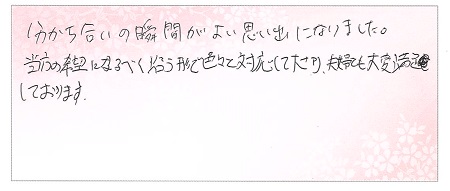 分かち合いの瞬間がよい思い出になりました。
当方の希望になるべく沿う形で色々と対応して下さり、夫婦共大変満足
しております。